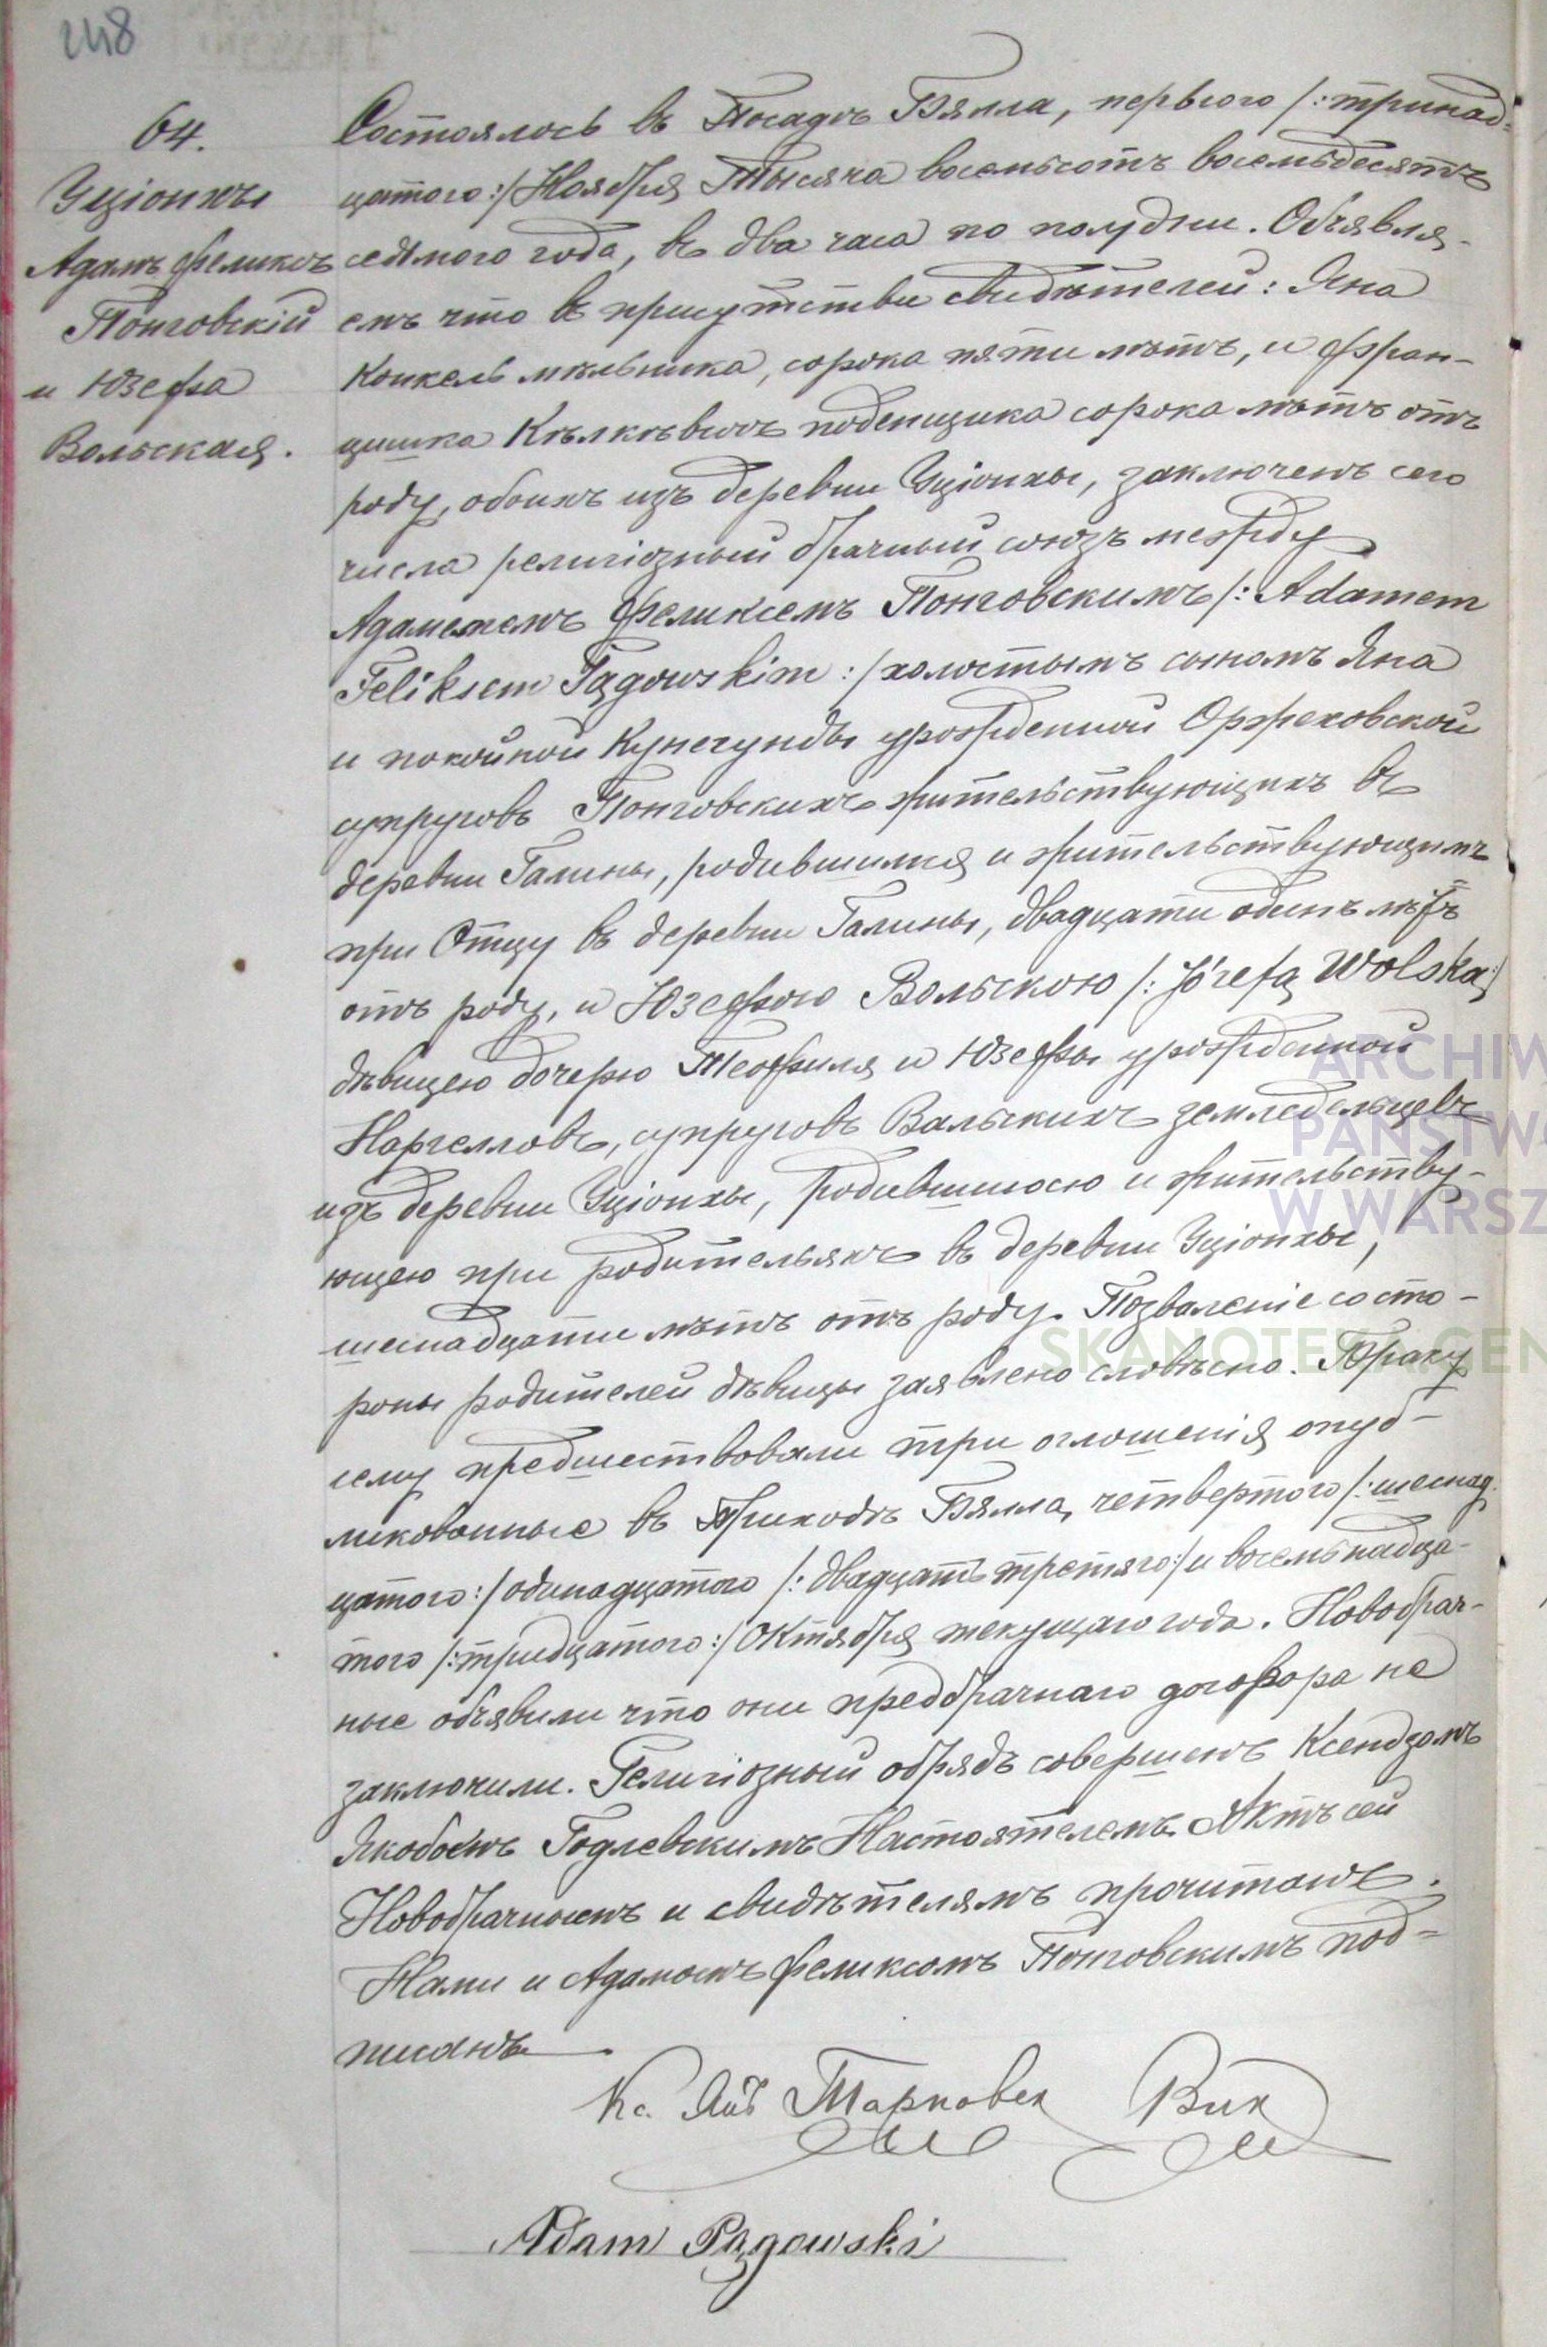 248
64.
Уціонжы
Адамъ Феликсъ
Понговскій
и Юзефа
Вольская.
Состоялось въ Посадѣ Бялла, первого /:тринад=
цатого:/ Ноября Тысяча восемьсотъ восемьдесятъ
седмого года, въ два часа по полудни. Объявля-
емъ что въ присутствіи свидѣтелей: Яна
Конкель мельника, сорока пяти лѣтъ, и Фран-
цишка поденщика сорока лѣтъ отъ
роду, обоихъ изъ деревни Уціонжы, заключенъ сего
числа религіозный брачный союзъ между
Адамемемъ Феликсемъ Понговскимъ /: Adamem
Feliksem Pągowskim :/ холостымъ сыномъ Яна
и покойной Кунегунды урожденной Оржеховской
супруговъ Понговскихъ жительствующихъ въ
деревни Галины, родившимся и жительствующимъ
при Отцу въ деревни Галины, двадцати одинъ лѣтъ
отъ роду, и Юзефою Вольскою /: Józefą Wolską:/
дѣвицею дочерю Теофиля и Юзефы урожденной
Наргелловъ, супруговъ Вальскихъ земледельцевъ
изъ деревни Уціонжы, родившиюсю и жительству-
ющею при родительяхъ въ деревни Уціонжы,
шеснадцати лѣтъ отъ роду. Позваленіе со сто-
роны родителей дѣвицы заявлено словѣсно. Браку
сему предшествовали три оглошенія опуб-
ликованные въ Приходѣ Бялла, четвертого /:шеснад.
цатого:/ одинадцатого /: двадцать третяго:/ и восемьнадца-
того /:тридцатого:/ Октября текущаго года. Новобрач-
ные объявили что они предбрачнаго договора не
заключили. Религіозный обрядъ совершенъ Ксендзомъ
Якобомъ Годлевскимъ Настоятелемъ. Актъ сей
Новобрачнымъ и свидѣтелямъ прочитанъ.
Нами и Адамомъ Феликсомъ Понговскимъ под-
писанъ
Кс. Янъ Тарновск Вик
Adam Pągowski
ARCHIW
PAŃSTWO
W WARSZ
SKANOTEKA.GEN